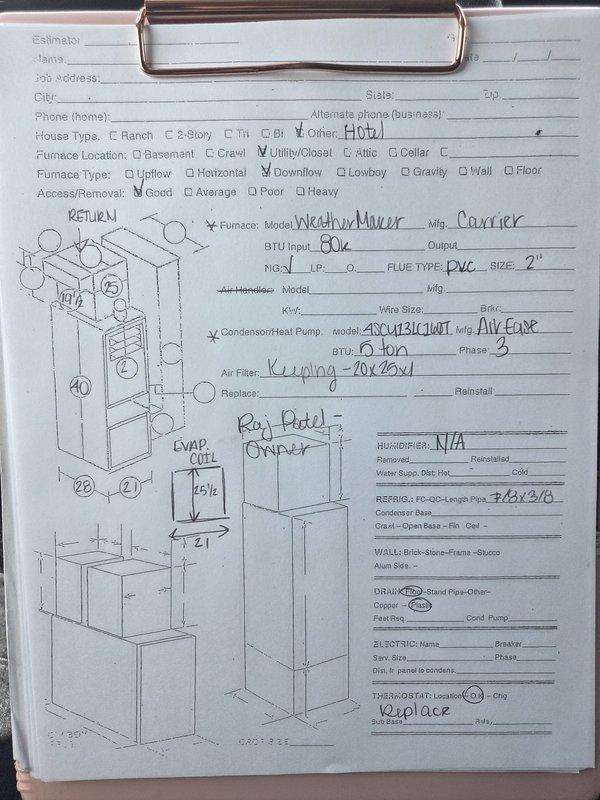 Estimator
Name: / /
Job Address:
City: State: Zip
Phone (home): Alternate phone (business):
House Type. Ranch 2-Story Tri Bi Other: Hotel
Furnace Location: Basement Crawl Utility/Closet Attic Cellar
Furnace Type: Upflow Horizontal Downflow Lowboy Gravity Wall Floor
Access/Removal: Good Average Poor Heavy
RETURN
* Furnace: Model WeatherMaker Mfg. Carrier
BTU Input 80k Output
NG: √ LP: O. FLUE TYPE: PVC SIZE: 2"
Air Handler: Model Mfg.
KW: Wire Size: Brkr:
* Condenser/Heat Pump. Model: Mfg. Air Ease
BTU: 5 ton Phase 3
Air Filter: Keeping - 20x25x1
Replace: Reinstall:
19 1/2
25
2
40
28 21
EVAP. COIL
25 1/2
21
Raj Patel -
Owner
HUMIDIFIER: N/A
Removed Reinstalled
Water Supp. Dist: Hot Cold
REFRIG.: FC-QC-Length Pipe 7/8 x 3/8
Condenser Base
Crawl - Open Base - Fin Ceil -
WALL: Brick-Stone-Frame-Stucco
Alum Side. -
DRAIN: Floor-Stand Pipe-Other-
Copper - Plastic
Feet Rsq. Cond Pump
ELECTRIC: Name Breaker
Serv. Size Phase
Dist. fr panel to condens.
THERMOSTAT: Location - O.K - Chg
Replace
Sub Base